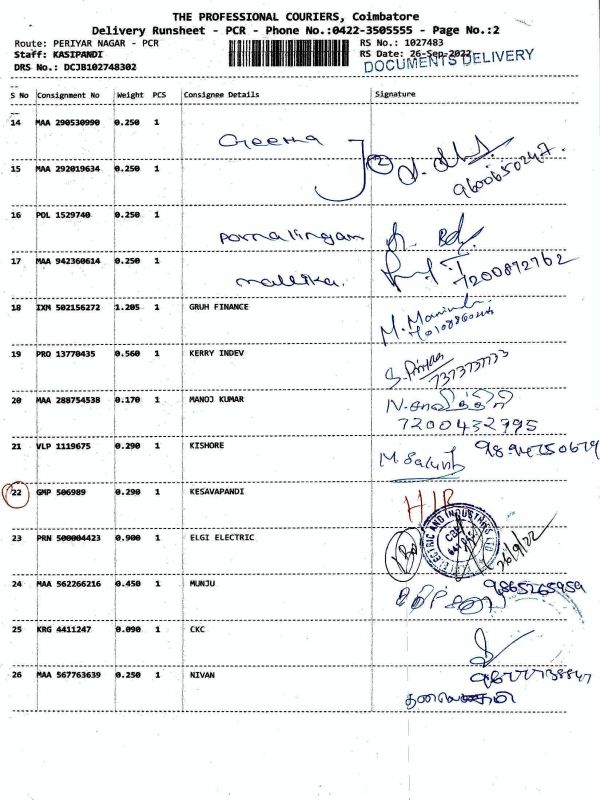 THE PROFESSIONAL COURIERS, Coimbatore
Delivery Runsheet - PCR - Phone No.:0422-3505555 - Page No.:2
Route: PERIYAR NAGAR - PCR RS No.: 1027483
Staff: KASIPANDI RS Date: 26-Sep-2022
DRS No.: DCJB102748302 DOCUMENTS DELIVERY
S No Consignment No Weight PCS Consignee Details Signature
14 MAA 290530990 0.250 1 Geetha
15 MAA 292019634 0.250 1 2
9600650247
16 POL 1529740 0.250 1 Pornalingam
17 MAA 942360614 0.250 1 mallika. 7200872762
18 IXM 502156272 1.205 1 GRUH FINANCE
19 PRO 13770435 0.560 1 KERRY INDEV S. Priya
7373737773
20 MAA 288754538 0.170 1 MANOJ KUMAR
7200432795
21 VLP 1119675 0.290 1 KISHORE
22 GMP 506989 0.290 1 KESAVAPANDI
23 PRN 500004423 0.900 1 ELGI ELECTRIC ELECTRIC AND INDUSTRIES LTD 26/9/22
24 MAA 562266216 0.450 1 MUNJU 9865265959
25 KRG 4411247 0.090 1 CKC
26 MAA 567763639 0.250 1 NIVAN